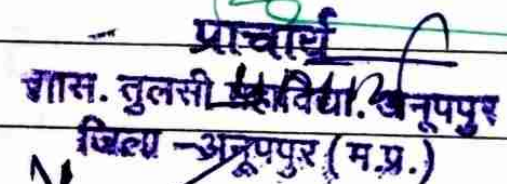 प्राचार्य
शास. तुलसी महाविद्या. अनूपपुर
जिला -अनूपपुर (म.प्र.)